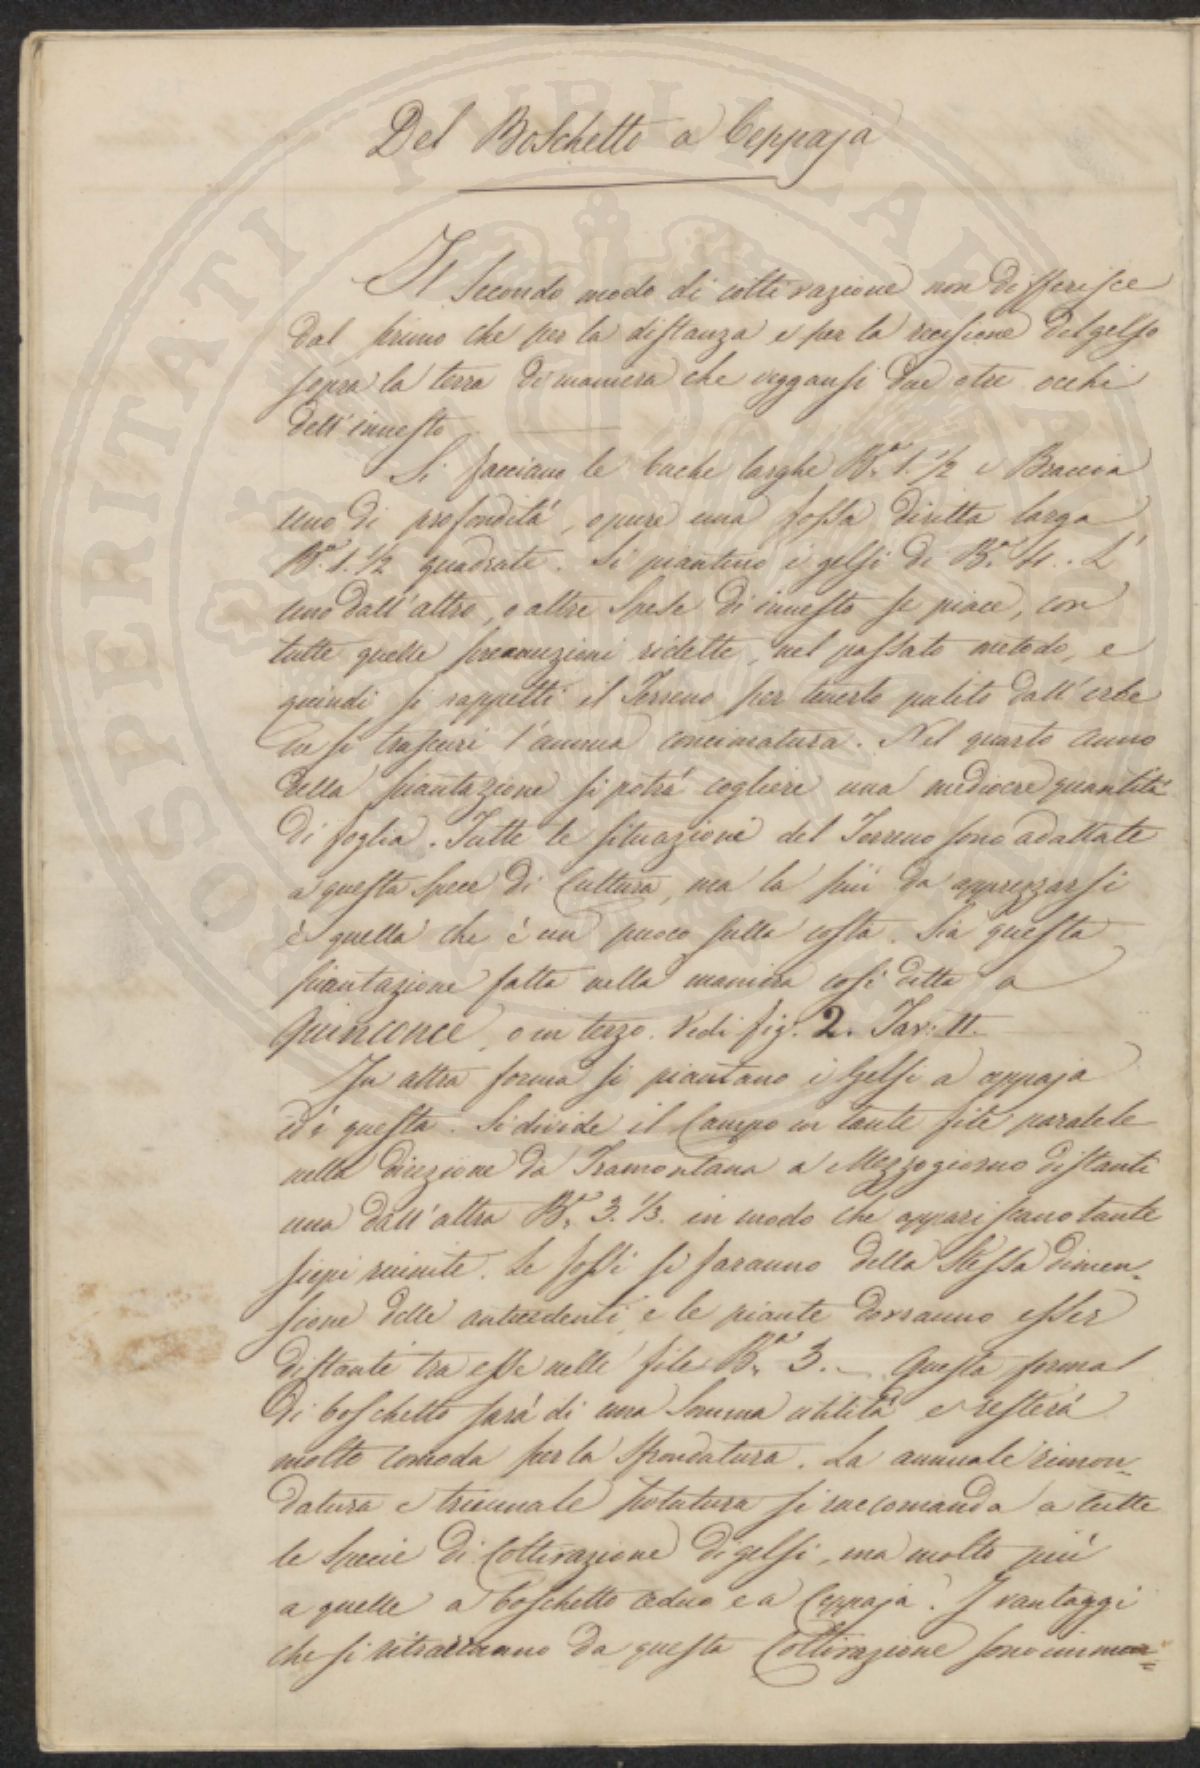 Del Boschetto a Ceppaja
Il Secondo modo di coltivazione non differisce
dal primo che per la distanza e per la recisione del gelso
sopra la terra di maniera che veggansi due o tre occhi
dell'innesto
Si facciano le buche larghe B.a 1. 1/2 e Braccia
uno di profondità, opure una fossa diritta larga
B.a 1. 1/2 quadrate. Si piantino i gelsi di B.a 4.. L'
uno dall'altro, o altre Spese di innesto se piace, con
tutte quelle precauzioni ridette, nel passato metodo, e
quindi si rappetti il Terreno per tenerlo pulito dall'erbe
si trascuri l'annua concimatura. Nel quarto anno
della piantazione si potrá cogliere una mediocre quantità
di foglia. Tutte le situazioni del Terreno sono adattate
a questa Specie di Cultura, ma la più da apprezzarsi
è quella che è un puoco sulla costa. Sia questa
piantazione fatta nella maniera così detta a
Quinconce, o in terzo. Vedi fig. 2. Tav: II.
In altra forma si piantano i Gelsi a ceppaja
ed è questa. Si divide il Campo in tante file paralele
nella direzione da Tramontana a Mezzogiorno distanti
una dall'altra B.a 3. 1/3. in modo che appariscano tante
siepi riunite. Le fossi si faranno della Stessa dimen=
sione delle antecedenti, e le piante dovranno esser
distanti tra esse nelle file B.a 3. _ Questa forma
di boschetto sará di una Somma utilità e resterà
molto comoda per la Sfrondatura. La annuale rimon=
datura e triennale potatura si raccomanda a tutte
le Specie di Coltivazione di gelsi, ma molto più
a quelle a boschetto ceduo e a Ceppaja. I vantaggi
che si ritrarranno da questa Coltivazione sono immen=
PROSPERITATI PUBLICAE AUGENDAE